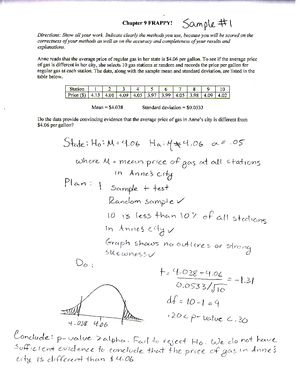 Chapter 9 FRAPPY!
Sample #1
Directions: Show all your work. Indicate clearly the methods you use, because you will be scored on the
correctness of your methods as well as on the accuracy and completeness of your results and
explanations.
Anne reads that the average price of regular gas in her state is $4.06 per gallon. To see if the average price
of gas is different in her city, she selects 10 gas stations at random and records the price per gallon for
regular gas at each station. The data, along with the sample mean and standard deviation, are listed in the
table below.
Station 1 2 3 4 5 6 7 8 9 10
Price ($) 4.13 4.01 4.09 4.05 3.97 3.99 4.05 3.98 4.09 4.02
Mean = $4.038 Standard deviation = $0.0533
Do the data provide convincing evidence that the average price of gas in Anne's city is different from
$4.06 per gallon?
State: Ho: M = 4.06 Ha: M ≠ 4.06 α = .05
where M = mean price of gas at all stations
in Anne's city
Plan: 1 sample t test
Random sample ✓
10 is less than 10% of all stations
in Anne's city ✓
Graph shows no outliers or strong
skewness ✓
Do:
t = 4.038 - 4.06 / 0.0533/√10 = -1.31
df = 10 - 1 = 9
.20 < p-value < .30
4.038 4.06
Conclude: p-value > alpha. Fail to reject Ho. We do not have
sufficient evidence to conclude that the price of gas in Anne's
city is different than $4.06